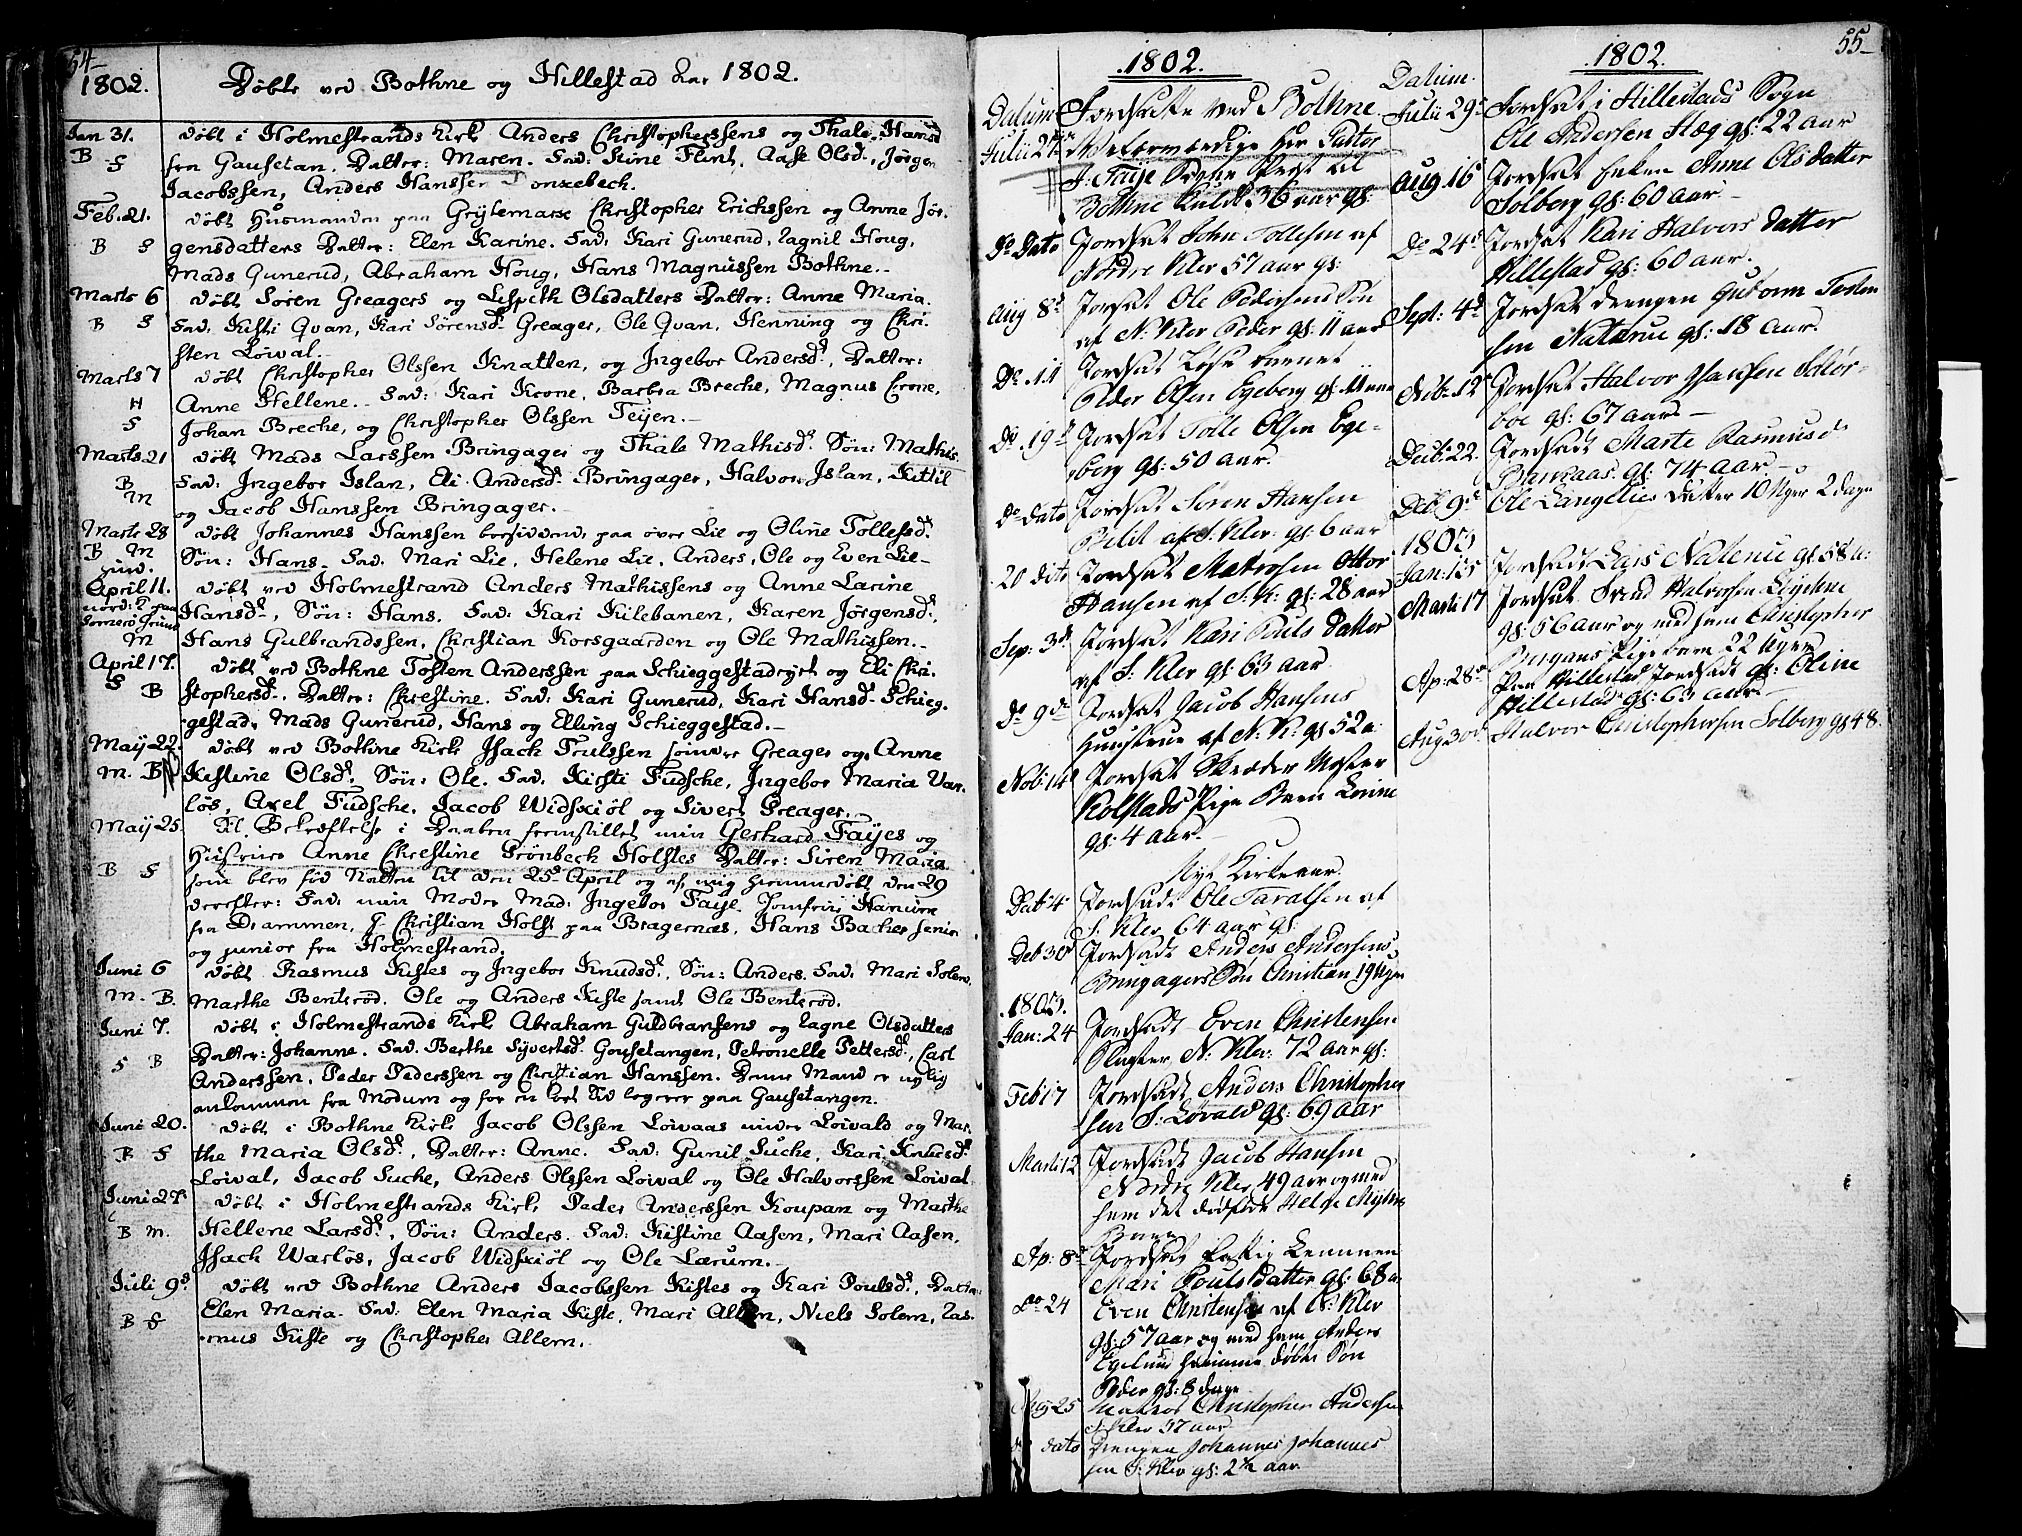 54
1802.
Døbte ved Bothne og Hillestad Aar 1802.
Jan 31. døbt i Holmestrands Kirk Anders Christopherssens og Thale Hansd
B f fra Gausetan, Datter: Maren. Fad: Kine Flint, Aase Olsd., Jørgen
Jacobssen, Anders Hanssen
Feb. 21. døbt Husmanden paa Grytemarx Christopher Erichssen og Anne Jør-
B f gensdatters Datter: Elen Karine. Fad: Kari Gunerud, Hagnil Houg,
Mads Gunerud, Abraham Houg, Hans Magnussen Bothne.
Marts 6 døbt Søren Greagers og Lispeth Olsdatters Datter: Anne Maria.
B f Fad: Kisti Qvan, Kari Sørensd. Greager, Ole Qvan, Henning og Chri-
sten Løival.
Marts 7 døbt Christopher Olssen Knatten, og Ingebor Andersd., Datter:
H Anne Hellene. Fad: Kari Krone, Barbra Breche, Magnus Crone,
f Johan Breche, og Christopher Olssen Teijen.
Marts 21 døbt Mads Larssen Bringager og Thale Mathisd. Søn: Mathis.
B Fad: Ingebor Islan, Eli Andersd. Bringager, Halvor Islan, Kittil
m og Jacob Hanssen Bringager.
Marts 28 døbt Johannes Hanssen boesiddende paa øvre Lie og Oline Tollefsd.
B m Søn: Hans. Fad: Mari Lie, Helene Lie, Anders, Ole og Even Lie
April 11. døbt ved Holmestrand Anders Mathissens og Anne Larine
Hansd., Søn: Hans. Fad: Kari Kilebanen, Karen Jørgensd.,
m Hans Gulbrandssen, Christian Korsgaarden og Ole Mathissen.
April 17. døbt ved Bothne Tosten Anderssen paa Schieggestadryt og Eli Chri-
f B stophersd. Datter: Chrestine. Fad: Kari Gunerud, Kari Hansd. Schieg-
gestad, Mads Gunerud, Hans og Elling Schieggestad.
May 22. døbt ved Bothne Kirk Isach Trulssen søndre Greager og Anne
m. B Kistine Olsd. Søn: Ole. Fad: Kirsti Fudsche, Ingebor Maria Var-
løs, Axel Fudsche, Jacob Widskiøl og Sivert Greager.
May 25. Til Bekræftelse i Daaben fremstillet min Gerhard Fayes og
Hustrues Anne Chrestine Grønbech Holstes Datter: Siren Maria
B f som blev fød Natten til den 25d April og af mig hiemmedøbt den 29
derefter: Fad: min Moder Mad: Ingebor Faye, Jomfrue
fra Drammen, Christian Holst paa Bragernæs, Hans Backer senior
og junior fra Holmestrand.
Juni 6 døbt Rasmus Kistes og Ingebor Knudsd., Søn: Anders. Fad: Mari Solem,
m. B. Marthe Bentsrød, Ole og Anders Kiste samt Ole Bentsrød.
Juni 7. døbt i Holmestrands Kirk Abraham Guldbransens og Hagne Olsdatters
f B Datter: Johanne. Fad: Berthe Syvertsd. Gousetangen, Petronelle Pettersd., Carl
Anderssen, Peder Pederssen og Christian Hanssen. Denne Mand er nylig
ankommen fra Modum og for en kort Tid logerer paa Gausetangen.
Juni 20. døbt i Bothne Kirk Jacob Olssen Løivaas under Løivald og Mar-
B f the Maria Olsd., Datter: Anne. Fad: Gunil Suche, Kari Knudsd.
Løival, Jacob Suche, Anders Olssen Løival og Ole Halvorssen Løival
Juni 27. døbt i Holmestrands Kirk, Peder Anderssen Koupan og Marthe
B m. Hellene Larsd., Søn: Anders. Fad: Kistine Aasen, Mari Aasen,
Isach Warløs, Jacob Widskiøl og Ole Lærum.
Juli 9d døbt ved Bothne Anders Jacobssen Kistes og Kari Poulsd., Datter:
B f Elen Maria. Fad: Elen Maria Kiste, Mari Allem, Niels Solem, Ras-
mus Kiste og Christopher Allem.
1802.
Datum Jordsatte ved Bothne
Julii 27 Velærværdige Her Pastor
Faye Sogne Præst til
Bothne Kald 36 aar gl:
Do Dato Jordsat John Tollefsen af
Nordre Klev 57 aar gl:
Aug 8d Jordsat Ole Pedersens Søn
af N: Klev Peder gl: 11 aar
Do 11 Jordsat Løse barnet
Peder Olsen Egeberg gl: 11
Do 19d Jordsat Tolle Olsen Ege-
berg gl: 50 aar.
do dato Jordsat Søren Hansen
af S: Klev: gl: 6 aar
20 dito Jordsat Matrosen Ottor
Hansen af S. K: gl: 28 aar
Sep: 3d Jordsat Kari Pouls datter
af S: Klev gl: 63 aar
do 9d Jordsat Jacob Hansens
Huustrue af N: K: gl 52 a:
Nob: 14 Jordsat Skræder Mester
Kolstads Pige Barn Lovine
gl: 4 aar.
Nyt Kirkeaar.
Deb: 4 Jordsadt Ole Taraldsen af
S. Klev 64 aar gl:
Deb 30d Jordsadt Anders Andersens
Bringagers Søn Christian 19 Uger
1803.
Jan: 24 Jordsadt Even Christensen
N: Klev: 72 aar gl:
Feb 17 Jordsadt Anders Christopher
sen S: Løvald gl: 69 aar
Marti 12 Jordsadt Jacob Hansen
Nordre Klev 49 aar og med
ham det dødfødt Helge Myhres
Barn
Ap: 8d Jordsat Fattig Lemmen
Mari Pouls Datter gl: 68 a
Do 24 Even Christensen af N: Klev
gl: 57 aar og med ham Anders
Egelund hiemme døbte Søn
Peder gl: 8 dage
25 Matros Christopher Andersen
S Klev 37 aar
do dato Drengen Johannes Johannes
sen S: Klev gl: 2½ aar
1802.
55
Datum.
Julii 29d Jordsat i Hillestads Sogn
Ole Andersen Hæg gl: 22 aar
Aug 16 Jordsat Enken Anne Ols datter
Solberg gl: 60 aar.
Do 24d Jordsat Kari Halvors datter
Hillestad gl: 60 aar.
Sept: 4d Jordsat drengen Gutorm Tosten
sen Nateruu gl: 18 aar.
Octb: 12 Jordsat Halvor Hansen
boe gl: 67 aar.
Decb: 22. Jordsadt Marte Rasmusd
gl: 74 aar.
Deb 9d Ole Langelies datter 10 Uger 2 dage
1803
Jan: 15 Jordsadt Lars Naterue gl 58 a:
Marti 17 Jordsat Svend Halvorsen
gl: 56 aar og med ham Christopher
Pige barn 22 Uger
Ap: 28d Paa Hillestad Jordsadt gl: Oline
Hillestad gl: 63 aar.
Aug 30d Halvor Christophersen Solberg gl 48.